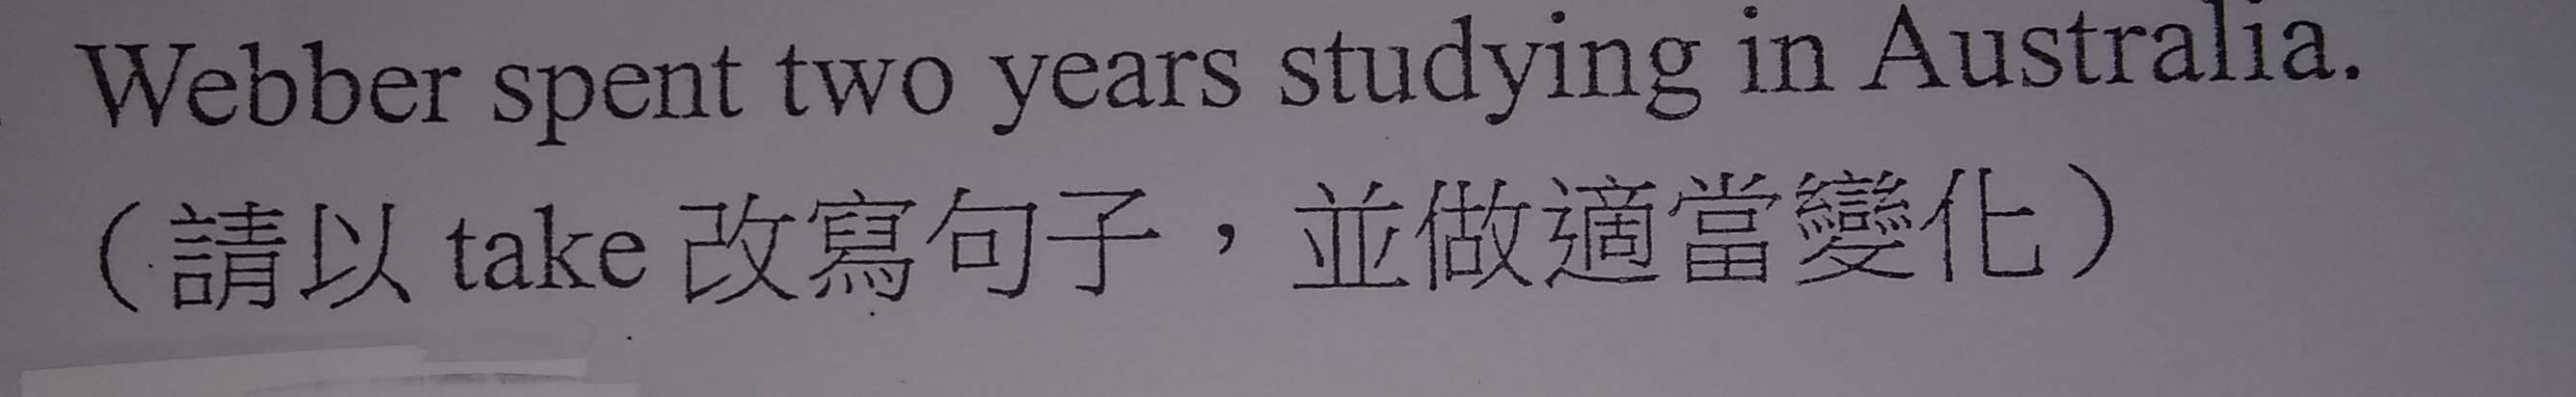 Webber spent two years studying in Australia.
（請以 take 改寫句子，並做適當變化）